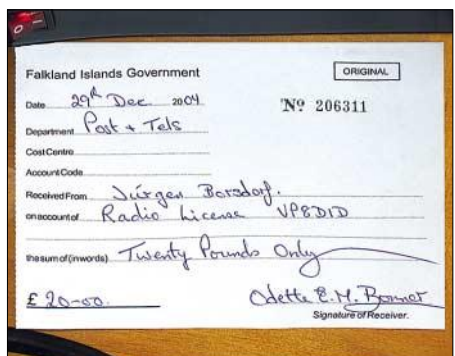 Falkland Islands Government
ORIGINAL
Date 29th Dec. 2004
Nº 206311
Department Post + Tels
Cost Centre
Account Code
Received From Jürgen Borsdorf.
on account of Radio License VP8DID
the sum of (in words) Twenty Pounds Only
£ 20-00.
Odette E.M. Bonner
Signature of Receiver.